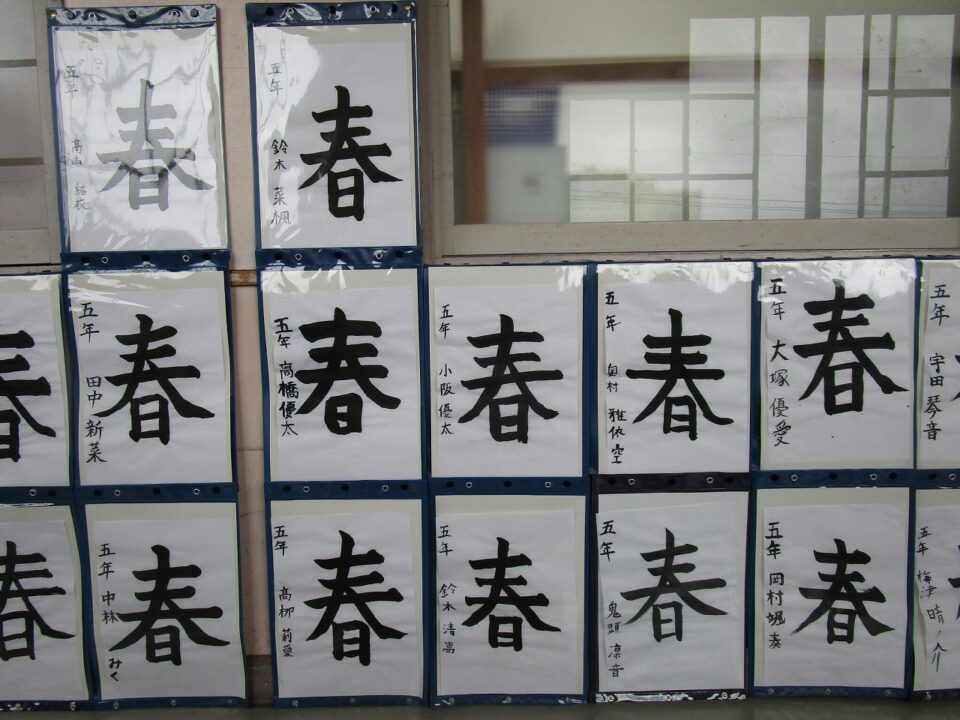 春
五年
高山 結衣
春
五年
鈴木 菜楓
春
春
五年
田中 新菜
春
五年
高橋優太
春
五年
小阪優太
春
五年
奥村 雅依空
春
五年
大塚優愛
五年
宇田琴音
春
春
五年
中林 みく
春
五年
高柳 莉愛
春
五年
鈴木 清
春
五年
鬼頭 凛音
春
五年
岡村颯奏
五年
梅津晴ノ介